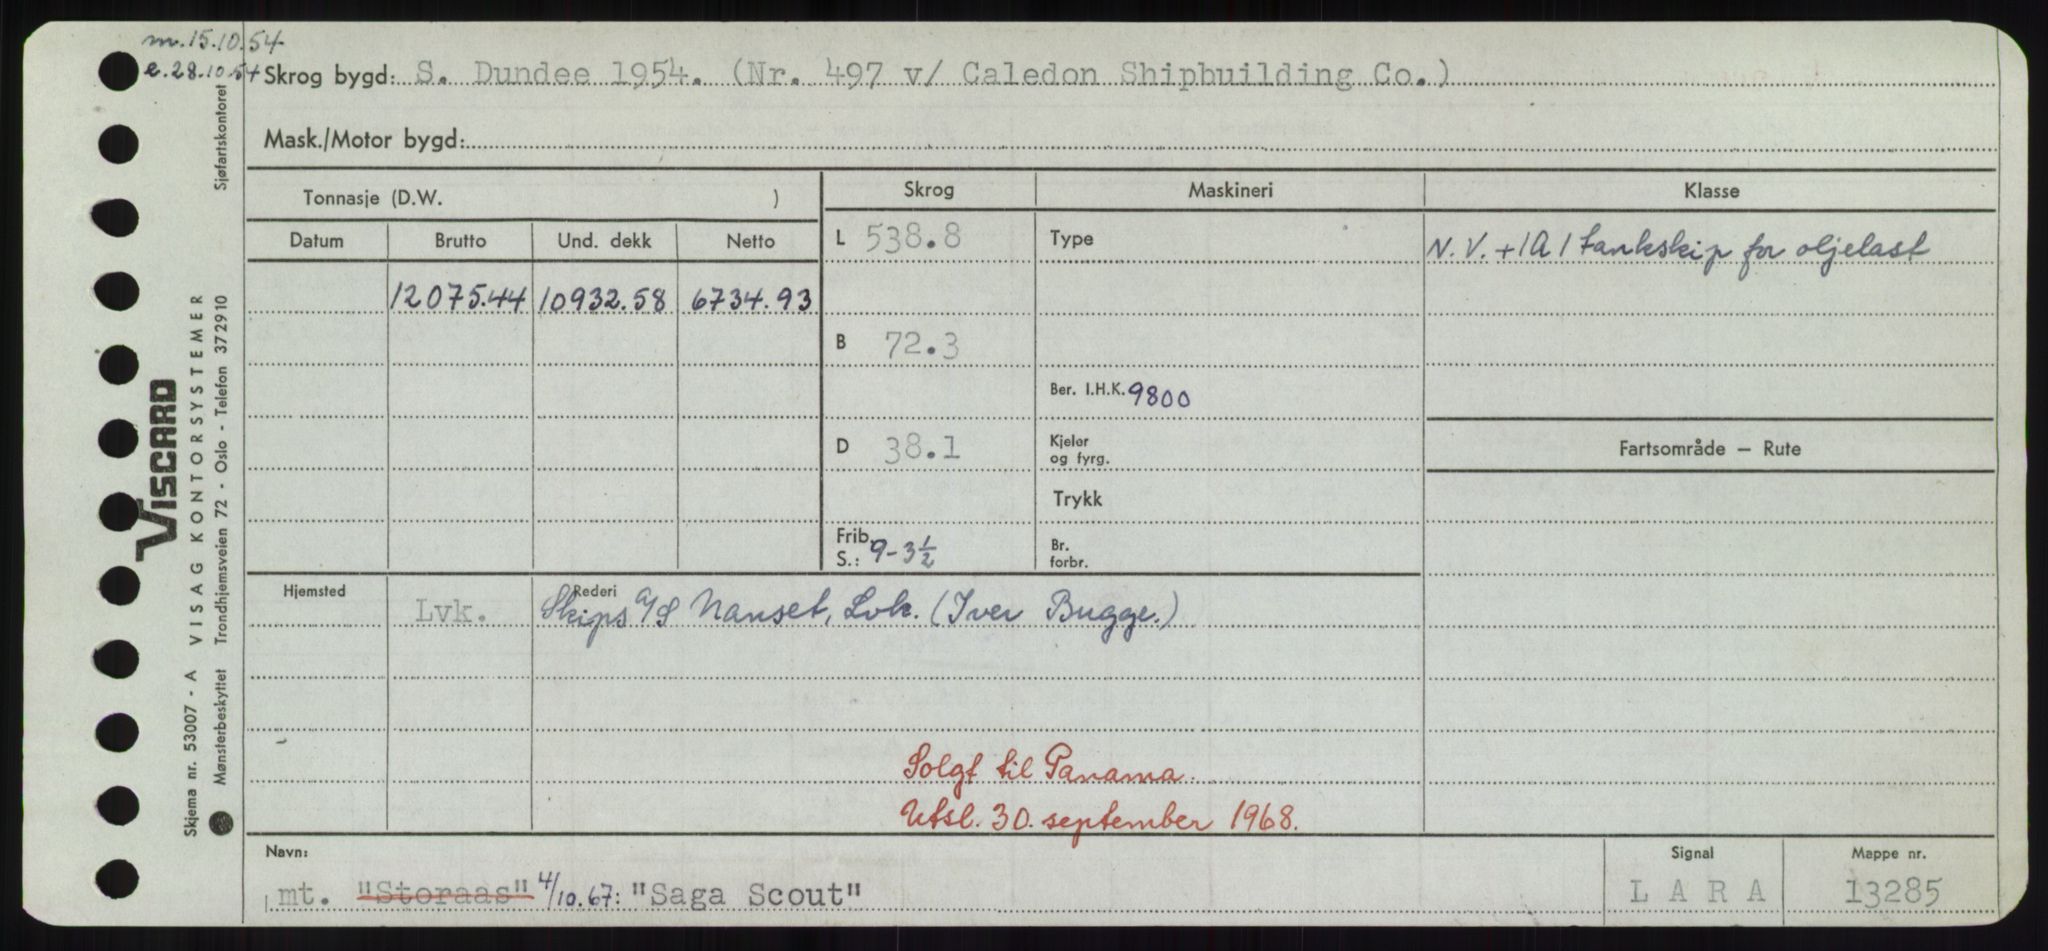 m. 15.10.54
e. 28.10.54 Skrog bygd: S. Dundee 1954. (Nr. 497 v/ Caledon Shipbuilding Co.)
Mask./Motor bygd:
Tonnasje (D.W. )
Skrog
Maskineri
Klasse
Datum
Brutto
Und. dekk
Netto
L 538.8
Type
N. V. + 1A1 tankskip for oljelast
12075.44 10932.58 6734.93
B 72.3
Ber. I.H.K. 9800
D 38.1
Kjeler
og fyrg.
Fartsområde — Rute
Trykk
Frib.
S.: 9-3½
Br.
forbr.
Hjemsted
Lvk.
Rederi
Skips a/s Nanset, Lvk. (Iver Bugge.)
Solgt til Panama.
Utsl. 30. september 1968.
Navn:
mt. "Storaas" 4/10.67: "Saga Scout"
Signal
L A R A
Mappe nr.
13285
Skjema nr. 53007 - A VISAG KONTORSYSTEMER
Mønsterbeskyttet Trondhjemsveien 72 - Oslo - Telefon 372910
Sjøfartskontoret
VISCARD